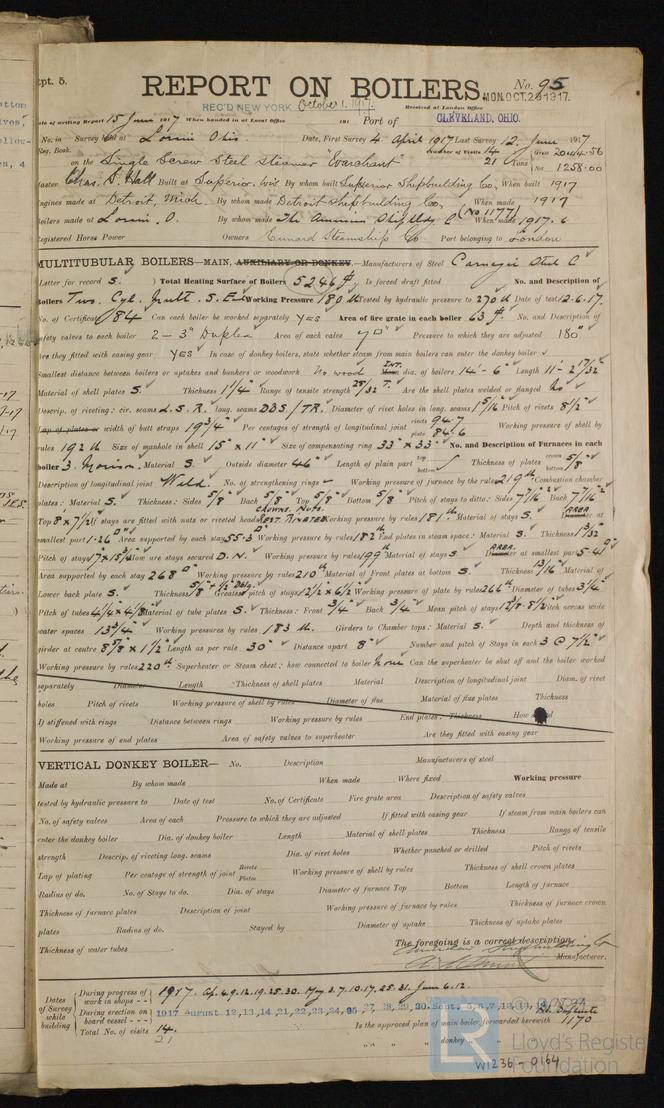 pt. 5.
REPORT ON BOILERS.
No. 95
REC'D NEW YORK October 1. 1917.
Received at London Office
MON. OCT. 29 1917.
Date of writing Report 15 June 1917 When handed in at Local Office 191 Port of CLEVELAND, OHIO.
No. in Survey held at Lorain Ohio Date, First Survey 4 April 1917 Last Survey 12 June 1917
Reg. Book. Number of Visits 14 Gross 2044.56
on the Single Screw Steel Steamer "Evarchant" 21 Tons
Net 1258.00
Master Chas. S. Hall Built at Superior, Wis By whom built Superior Shipbuilding Co. When built 1917
Engines made at Detroit, Mich. By whom made Detroit Shipbuilding Co. When made 1917
Boilers made at Lorain, O. By whom made The American Shipbldg Co (No 1177) When made 1917.6
Registered Horse Power Owners Cunard Steamship Co Port belonging to London
MULTITUBULAR BOILERS—MAIN, AUXILIARY OR DONKEY.—Manufacturers of Steel Carnegie Steel Co
Letter for record S. ) Total Heating Surface of Boilers 5246 Is forced draft fitted No. and Description of
Boilers Two. Cyl. Mult. S. End Working Pressure 180 Tested by hydraulic pressure to 270 Date of test 12.6.17.
No. of Certificate 84 Can each boiler be worked separately YES Area of fire grate in each boiler 63 No. and Description of
safety valves to each boiler 2 - 3" Duplex Area of each valve Pressure to which they are adjusted 180
Are they fitted with easing gear YES In case of donkey boilers, state whether steam from main boilers can enter the donkey boiler
Smallest distance between boilers or uptakes and bunkers or woodwork No wood INT. dia. of boilers 14'-6" Length 11'-2 17/32
Material of shell plates S. Thickness 1 1/4 Range of tensile strength 28/32 T. Are the shell plates welded or flanged No
Descrip. of riveting: cir. seams L.S.R. long. seams DBS/TR. Diameter of rivet holes in long. seams 1 5/16 Pitch of rivets 8 1/2
Lap of plates or width of butt straps 19 3/4" Per centages of strength of longitudinal joint rivets 94.7 plate 84.6 Working pressure of shell by
rules 192 Size of manhole in shell 15" x 11" Size of compensating ring 33" x 33" No. and Description of Furnaces in each
boiler 3. Morison. Material S. Outside diameter 46" Length of plain part top bottom Thickness of plates crown bottom 5/8
Description of longitudinal joint Weld. No. of strengthening rings - Working pressure of furnace by the rules 219 Combustion chamber
plates: Material S. Thickness: Sides 5/8 Back 5/8 Top 5/8 Bottom 5/8 Pitch of stays to ditto: Sides 7 7/16 Back 7 7/16
Top 8" x 7 1/2 If stays are fitted with nuts or riveted heads CROWNS. NUTS. REST. RIVETED Working pressure by rules 181 Material of stays S. AREA at
smallest part 1.26 Area supported by each stay 55.3 Working pressure by rules 182 End plates in steam space: Material S. Thickness 1 3/32
Pitch of stays 17 x 15 3/4 How are stays secured D.N. Working pressure by rules 199 Material of stays S AREA. at smallest part 5.41
Area supported by each stay 268 Working pressure by rules 210 Material of Front plates at bottom S. Thickness 13/16 Material of
Lower back plate S. Thickness 5/8 Greatest pitch of stays 12 1/2 x 6 1/2 Working pressure of plate by rules 266 Diameter of tubes 3 1/4
Pitch of tubes 4 1/4 x 4 1/8 Material of tube plates S. Thickness: Front 3/4 Back 3/4 Mean pitch of stays 12 1/8 - 8 1/2 Pitch across wide
water spaces 13 3/4" Working pressures by rules 183 Girders to Chamber tops: Material S. Depth and thickness of
girder at centre 8 5/8 x 1 1/2 Length as per rule 30" Distance apart 8" Number and pitch of Stays in each 3 @ 7 1/2"
Working pressure by rules 220 Superheater or Steam chest; how connected to boiler None Can the superheater be shut off and the boiler worked
separately Diameter Length Thickness of shell plates Material Description of longitudinal joint Diam. of rivet
holes Pitch of rivets Working pressure of shell by rules Diameter of flue Material of flue plates Thickness
If stiffened with rings Distance between rings Working pressure by rules End plates: Thickness How
Working pressure of end plates Area of safety valves to superheater Are they fitted with easing gear
VERTICAL DONKEY BOILER— No. Description Manufacturers of steel
Made at By whom made When made Where fixed Working pressure
tested by hydraulic pressure to Date of test No. of Certificate Fire grate area Description of safety valves
No. of safety valves Area of each Pressure to which they are adjusted If fitted with easing gear If steam from main boilers can
enter the donkey boiler Dia. of donkey boiler Length Material of shell plates Thickness Range of tensile
strength Descrip. of riveting long. seams Dia. of rivet holes Whether punched or drilled Pitch of rivets
Lap of plating Per centage of strength of joint Rivets Plates Working pressure of shell by rules Thickness of shell crown plates
Radius of do. No. of Stays to do. Dia. of stays Diameter of furnace Top Bottom Length of furnace
Thickness of furnace plates Description of joint Working pressure of furnace by rules Thickness of furnace crown
plates Radius of do. Stayed by Diameter of uptake Thickness of uptake plates
Thickness of water tubes
The foregoing is a correct description,
Manufacturer.
Dates of Survey while building
During progress of work in shops - - 1917. Ap. 4.9.12.19.25.30. May 3.7.10.17.25.31. June 6.12.
During erection on board vessel - - - 1917 August 12, 13, 14, 21, 22, 23, 24, 25, 27, 28, 29, 30. Sept.
Total No. of visits 14. 21
Is the approved plan of main boiler forwarded herewith 1170
" " " donkey " "
LR
Lloyd's Register
Foundation
W1236-0164